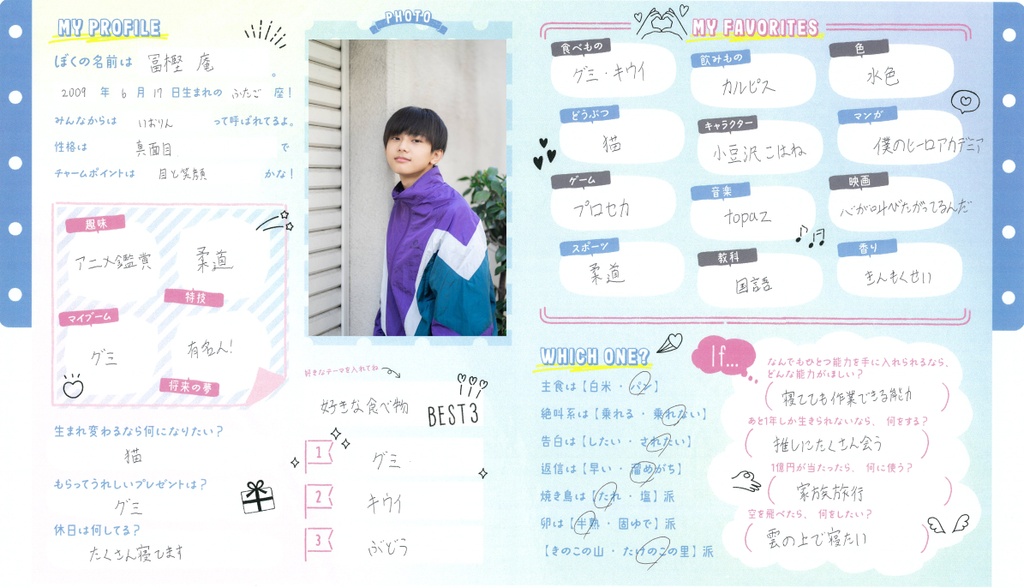 MY PROFILE
ぼくの名前は 冨樫 庵 。
2009 年 6 月 17 日生まれの ふたご 座!
みんなからは いおりん って呼ばれてるよ。
性格は 真面目 で
チャームポイントは 目と笑顔 かな!
趣味
アニメ鑑賞
柔道
特技
マイブーム
グミ
有名人!
将来の夢
生まれ変わるなら何になりたい?
猫
もらってうれしいプレゼントは?
グミ
休日は何してる?
たくさん寝てます
PHOTO
好きなテーマを入れてね
好きな食べ物 BEST3
1 グミ
2 キウイ
3 ぶどう
MY FAVORITES
食べもの
グミ・キウイ
飲みもの
カルピス
色
水色
どうぶつ
猫
キャラクター
小豆沢 こはね
マンガ
僕のヒーローアカデミア
ゲーム
プロセカ
音楽
topaz
映画
心が叫びたがってるんだ
スポーツ
柔道
教科
国語
香り
きんもくせい
WHICH ONE?
主食は【白米・パン】
絶叫系は【乗れる・乗れない】
告白は【したい・されたい】
返信は【早い・溜めがち】
焼き鳥は【たれ・塩】派
卵は【半熟・固ゆで】派
【きのこの山・たけのこの里】派
If...
なんでもひとつ能力を手に入れられるなら、
どんな能力がほしい?
(寝てても作業できる能力)
あと1年しか生きられないなら、何をする?
(推しにたくさん会う)
1億円が当たったら、何に使う?
(家族旅行)
空を飛べたら、何をしたい?
(雲の上で寝たい)